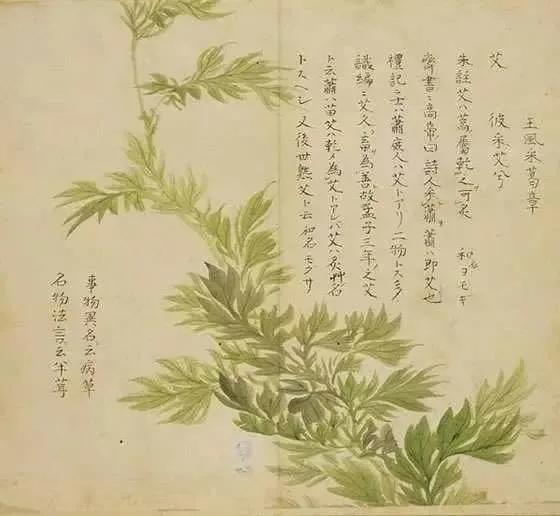 王風采葛章
艾　彼采艾兮
朱註艾ハ蒿屬乾之可灸　和名ヨモギ
齊書ニ高帝曰詩人采蕭蕭ハ即艾也
禮記ニ士ハ蕭庶人ハ艾トアリ二物トスミタ
識編ニ艾久シ畜為善故孟子三年之艾
ト云蕭ハ苗艾ハ乾ノ為艾トアレバ艾ハ灸艸名
トスヘシ又後世熟艾ト云和名モグサ
事物異名ニ云病草
名物法言ニ云半茸